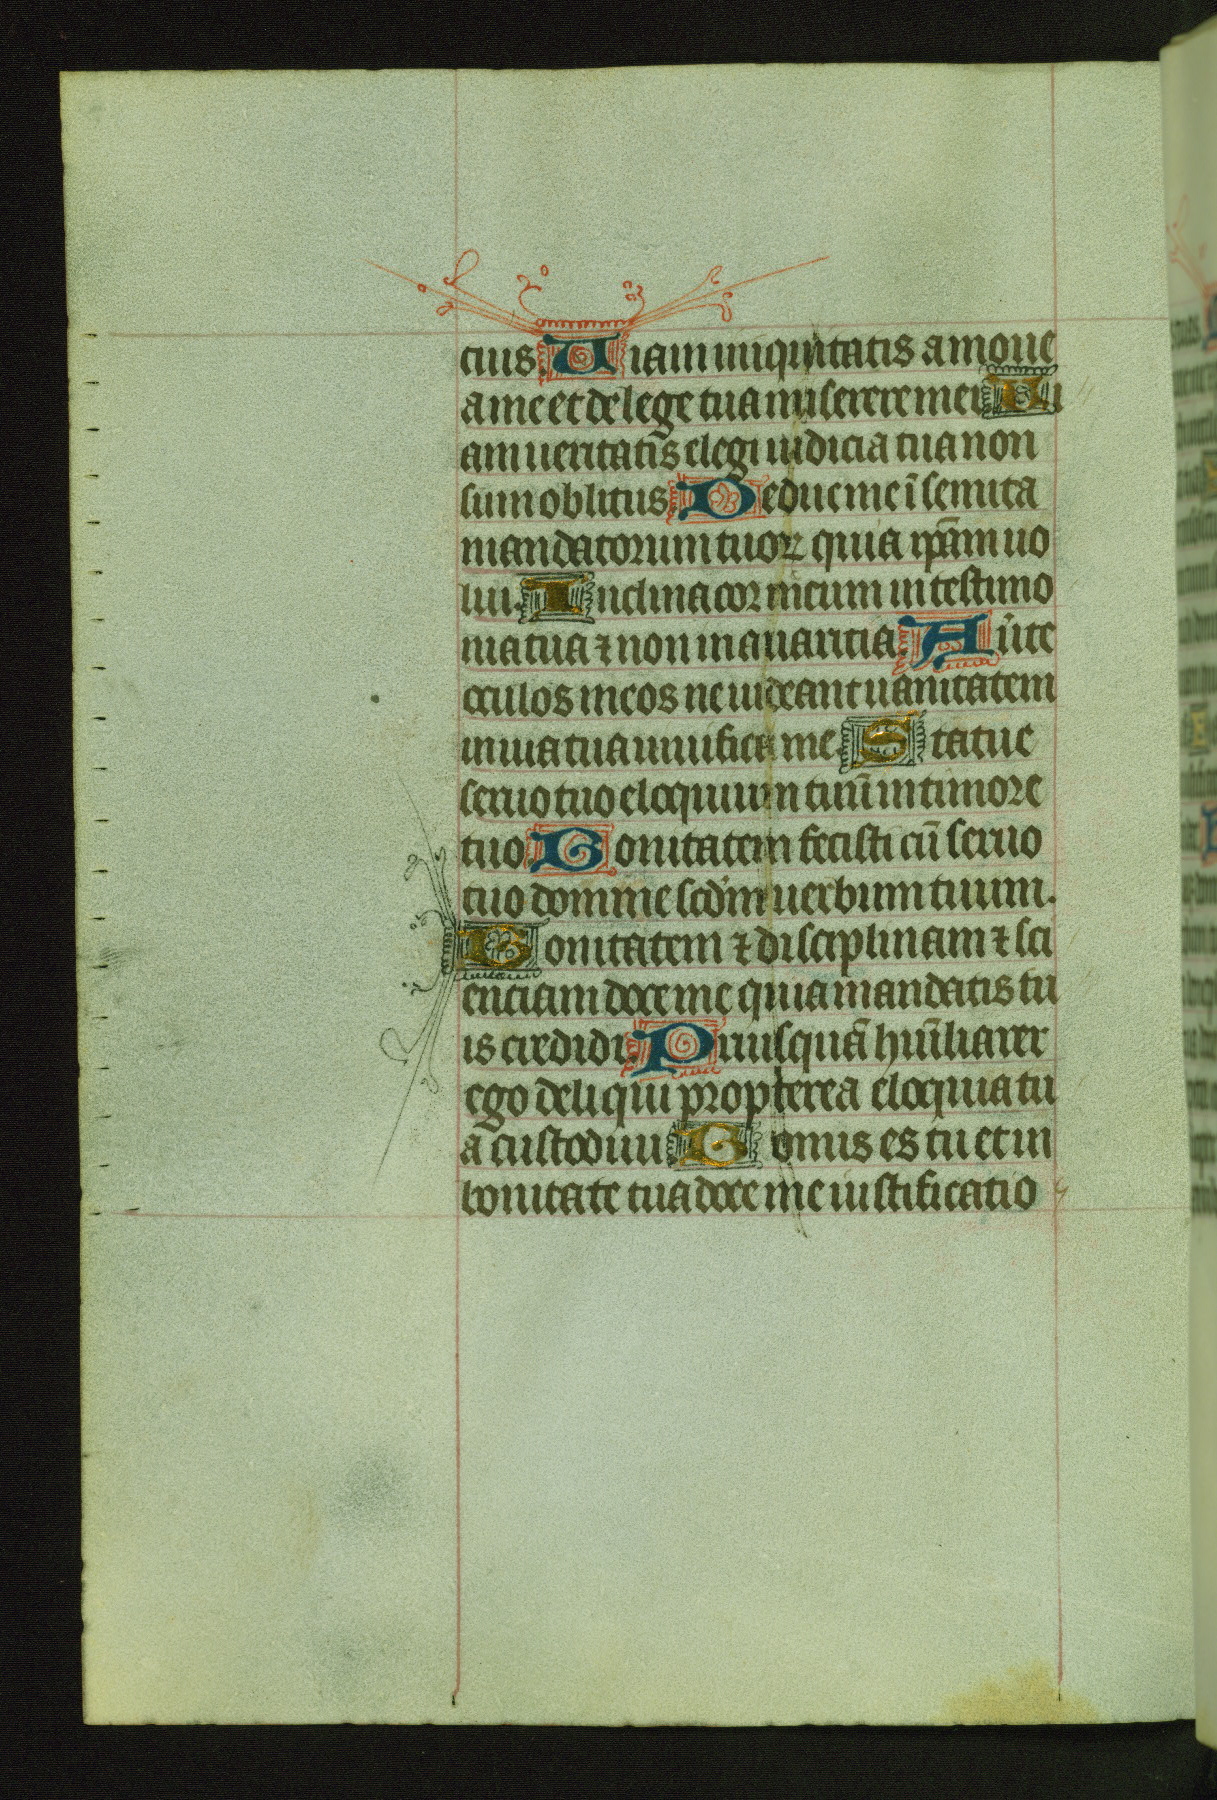 cius. Uiam iniquitatis amoue
a me et de lege tua miserere mei. Ui
am ueritatis elegi iudicia tua non
sum oblitus. Deduc me ī semita
mandatorum tuoꝝ quia ip̄am uo
lui. Inclina cor meum in testimo
nia tua ⁊ non in auaritia. Au̾te
oculos meos ne uideant uanitatem
in uia tua uiuifica me. Statue
seruo tuo eloquium tuū in timore
tuo. Bonitatem fecisti cū seruo
tuo domine scd̾m uerbum tuum.
Bonitatem ⁊ disciplinam ⁊ sci
entiam doce me quia mandatis tu
is credidi. Priusquā hūiliarer
ego deliqui propterea eloquia tu
a custodiui. Bonus es tu et in
bonitate tua doce me iustificatio